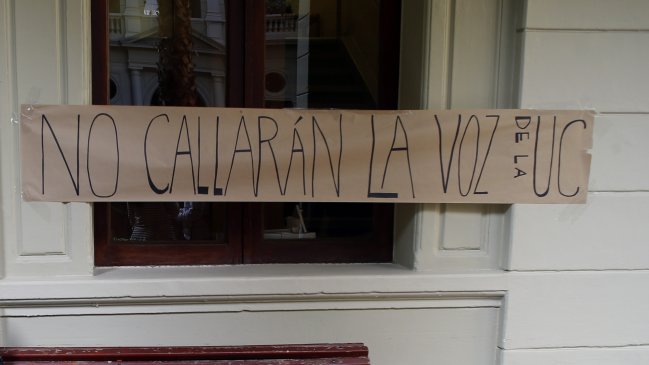 NO CALLARÁN LA VOZ DE LA UC